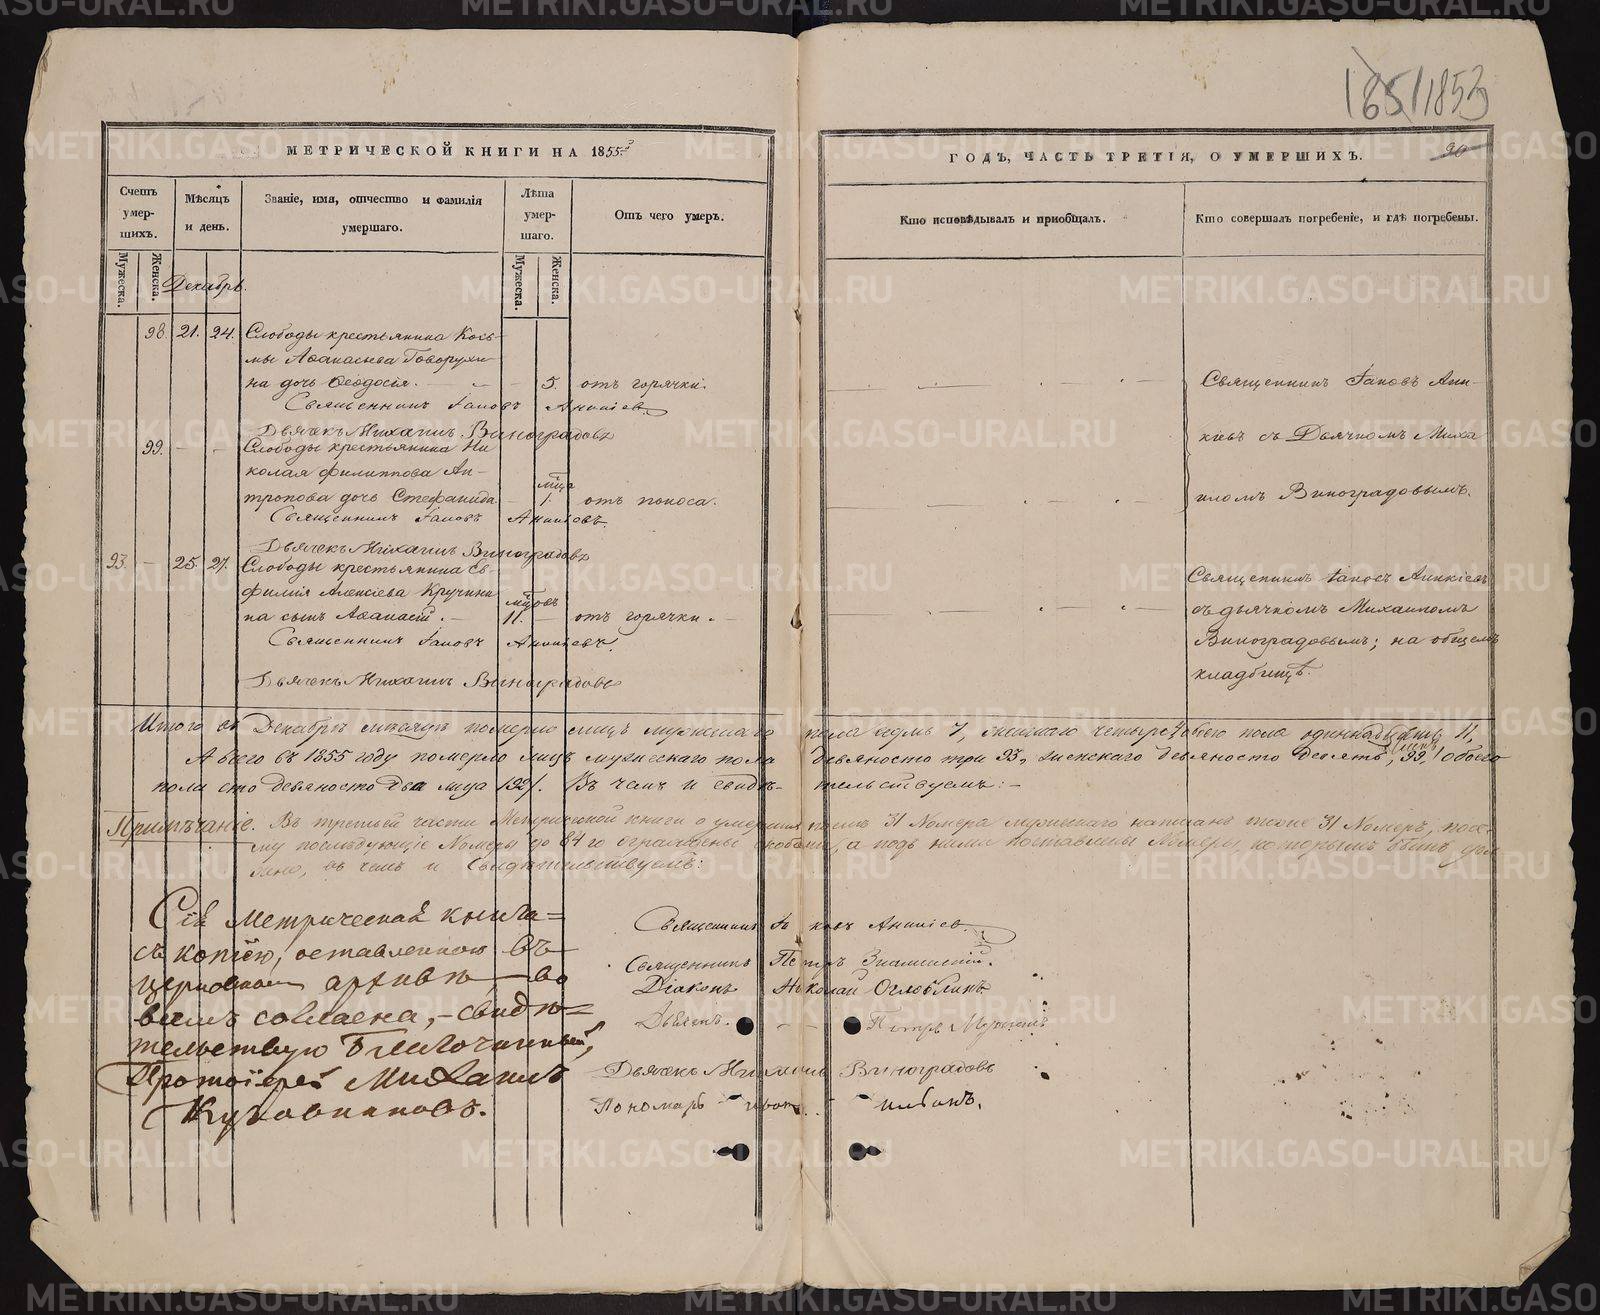 165/1853
МЕТРИЧЕСКОЙ КНИГИ НА 1855
ГОДЪ, ЧАСТЬ ТРЕТІЯ, О УМЕРШИХЪ.
90
Счетъ умер-шихъ.
Мѣсяцъ и день.
Званіе, имя, отчество и фамилія умершаго.
Лѣта умер-шаго.
Отъ чего умеръ.
Кто исповѣдывалъ и пріобщалъ.
Кто совершалъ погребеніе, и гдѣ погребены.
Мужеска.
Женска.
Декабрь.
Мужеска.
Женска.
98. 21. 24. Слободы крестьянина Козь-
мы Аѳанасьева Говорухи-
на дочь Ѳеодосія. 5. отъ горячки.
Священникъ Іаковъ Ананіевъ
Дьячекъ Михаилъ Виноградовъ
Священникъ Іаковъ Ана-
ніевъ съ Дьячкомъ Миха
иломъ Виноградовымъ.
99. Слободы крестьянина Ни
колая Филиппова Ан-
тропова дочь Стефанида 1. отъ поноса.
Священникъ Іаковъ Ананіевъ.
Дьячекъ Михаилъ Виноградовъ
93. 25. 27. Слободы крестьянина Ев-
фимія Алексіева Кручини
на сынъ Аѳанасій. 11. отъ горячки.
Священникъ Іаковъ Ананіевъ.
Дьячекъ Михаилъ Виноградовъ
Священникъ Іаковъ Ананіевъ
съ дьячкомъ Михаиломъ
Виноградовымъ; на общемъ
кладбищѣ.
Итого въ Декабрѣ мѣсяцѣ померло лицъ мужескаго пола седмь 7, женскаго четыре 4, обоего пола одиннадцать 11,
А всего въ 1855 году померло лицъ мужескаго пола девяносто три 93, женскаго девяносто девять, 99, обоего
пола сто девяносто два лица 192. Въ чемъ и свидѣ-тельствуемъ:
Примѣчаніе. Въ третьей части Метрической книги о умершихъ послѣ 31 Номера мужескаго написанъ тоже 31 Номеръ, посе-
му послѣдующіе Номеры до 84го ограждены скобами, а подъ ними поставлены Номеры, которымъ быть
въ чемъ и свидѣтельствуемъ:
Сія Метрическая книга
съ копіею, оставленною въ
церковномъ архивѣ, во
всемъ согласна, свидѣ-
тельствую Благочинный,
Протоіерей Михаилъ
Священникъ Іаковъ Ананіевъ
Священникъ Петръ Знаменскій.
Діаконъ Николай Оглоблинъ
Дьячекъ Петръ
Дьячекъ Михаилъ Виноградовъ
Пономарь
METRIKI.GASO-URAL.RU